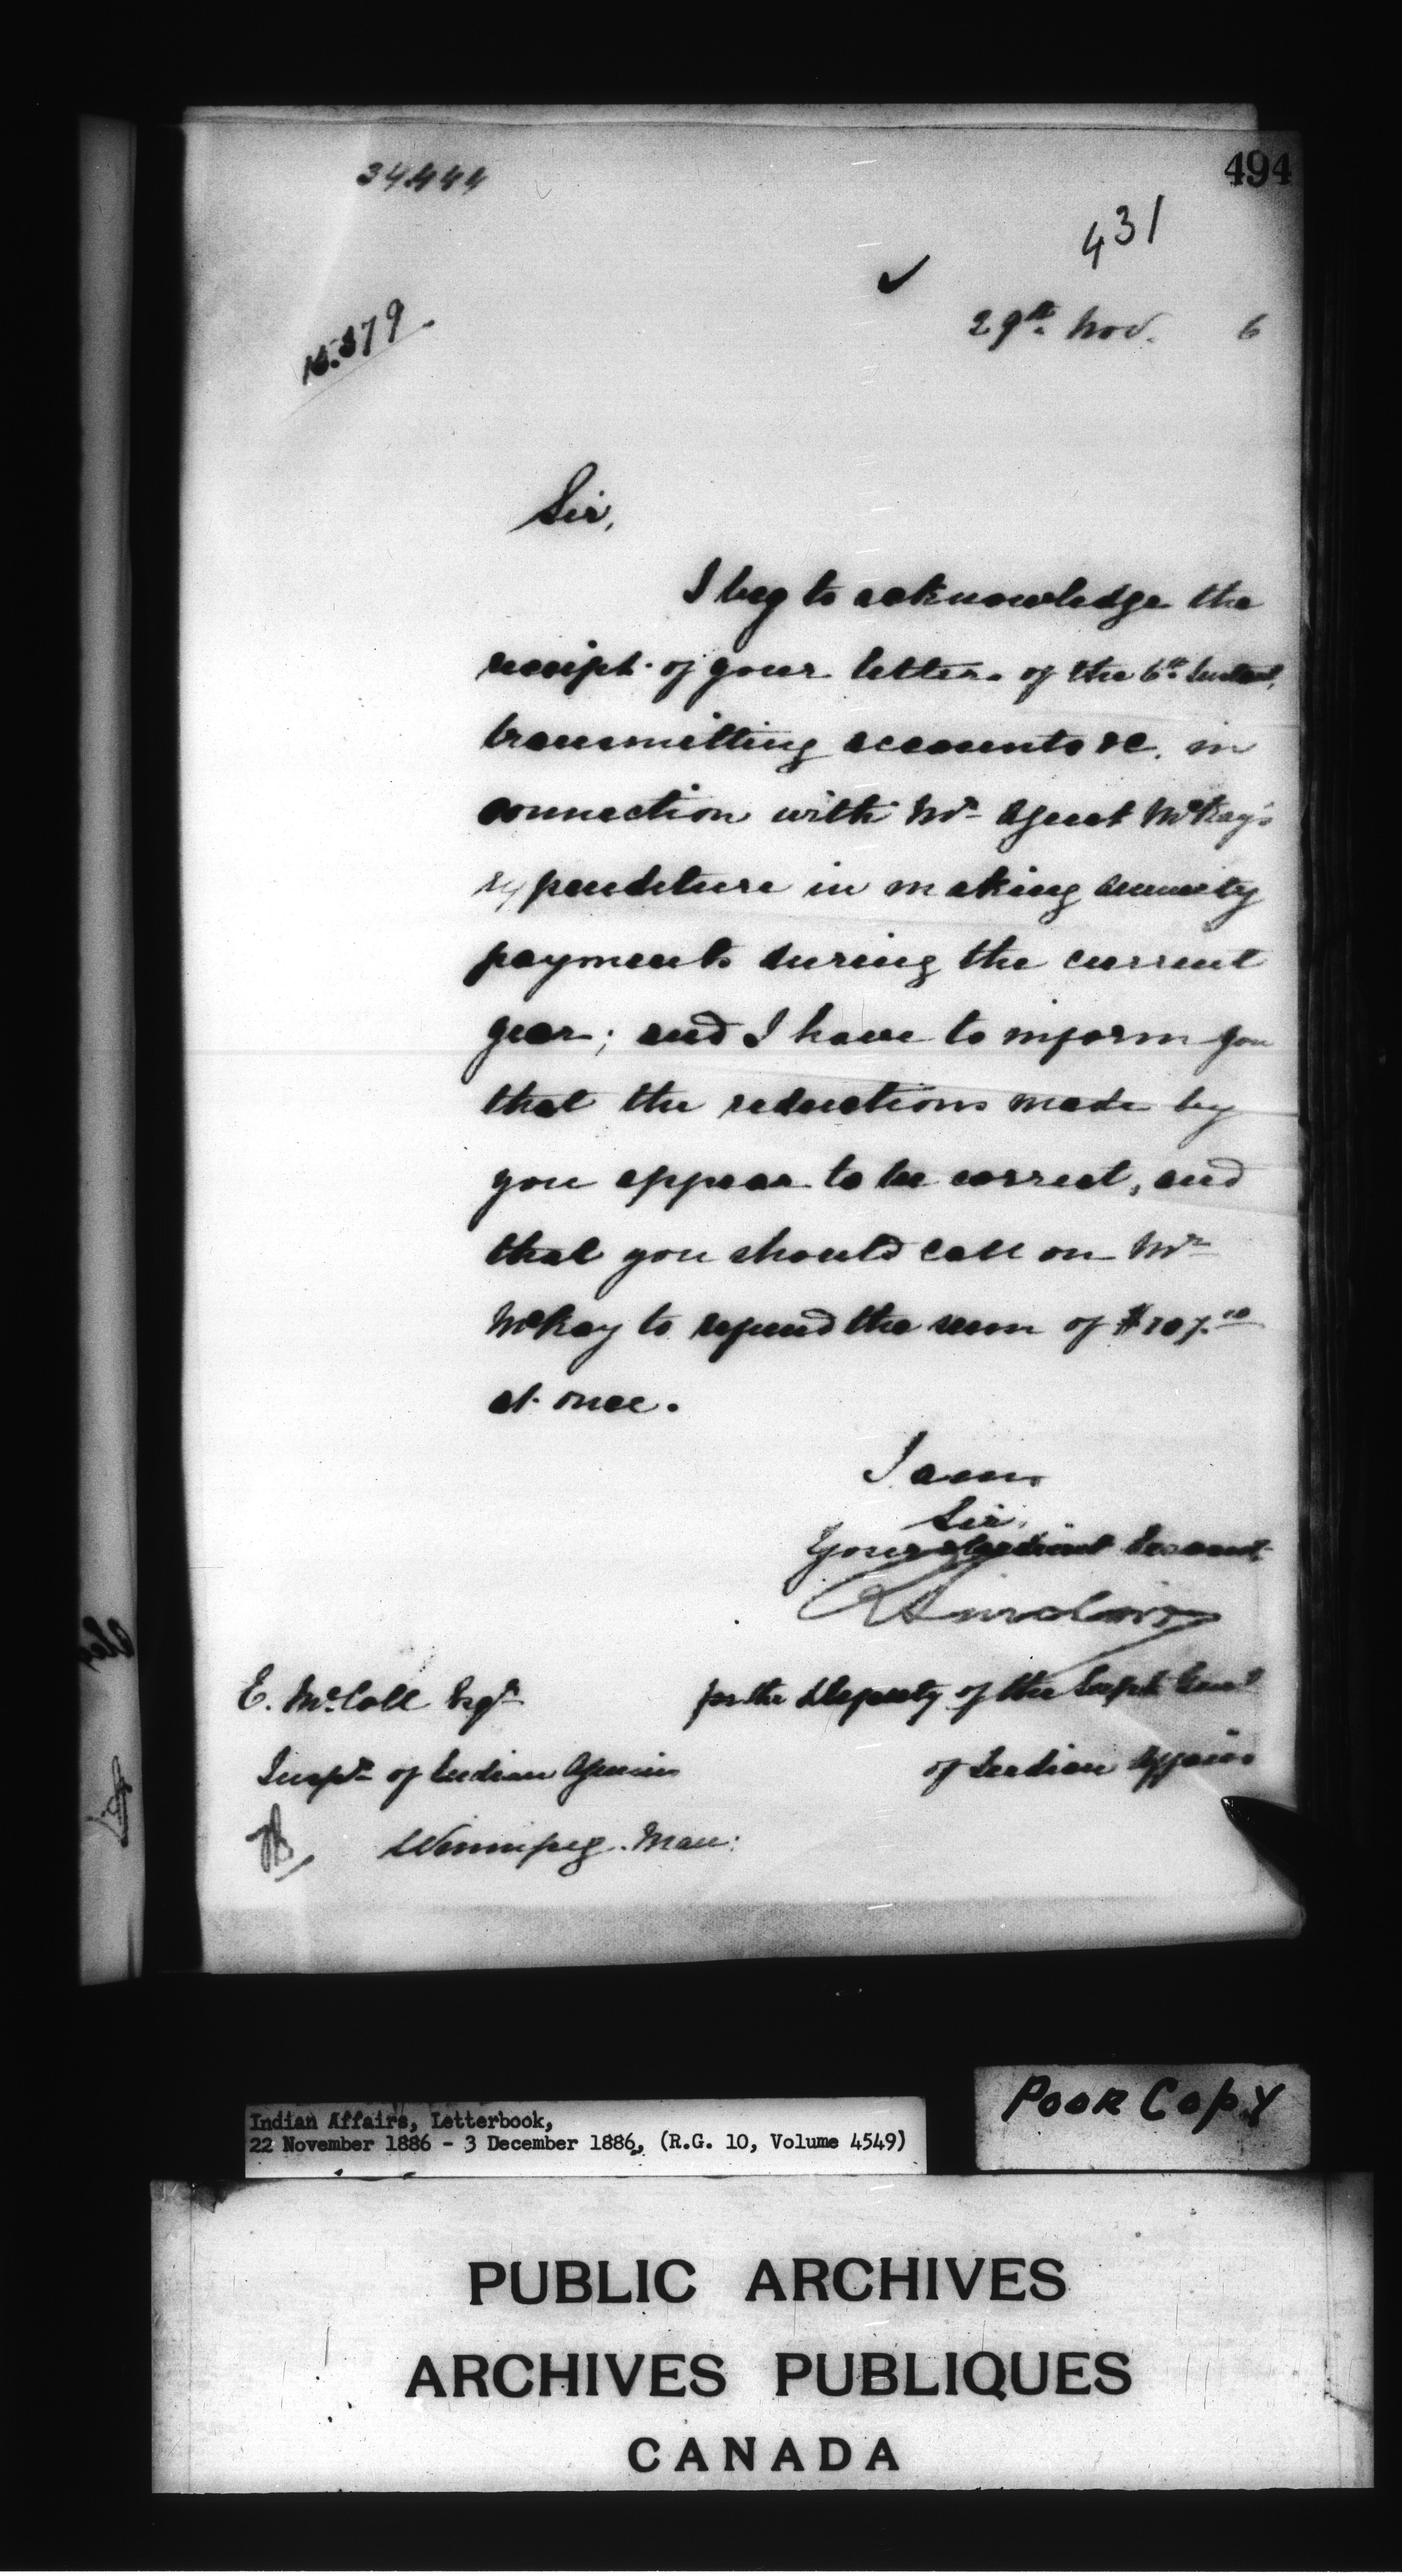 34444
494
431
29th Nov. 6
Sir,
I beg to acknowledge the
receipt of your letter of the 6th Instant,
transmitting accounts &c. in
connection with Mr Agent McKay's
expenditure in making annuity
payments during the current
year; and I have to inform you
that the reductions made by
you appear to be correct, and
that you should call on Mr
McKay to refund the sum of
at once.
I am
Sir,
Your obedient Servant
R Sinclair
E. McColl Esqr
for the Deputy of the Supt Genl
Inspr of Indian Agencies
of Indian Affairs
Winnipeg. Man:
POOR COPY
Indian Affairs, Letterbook,
22 November 1886 - 3 December 1886, (R.G. 10, Volume 4549)
PUBLIC ARCHIVES
ARCHIVES PUBLIQUES
CANADA